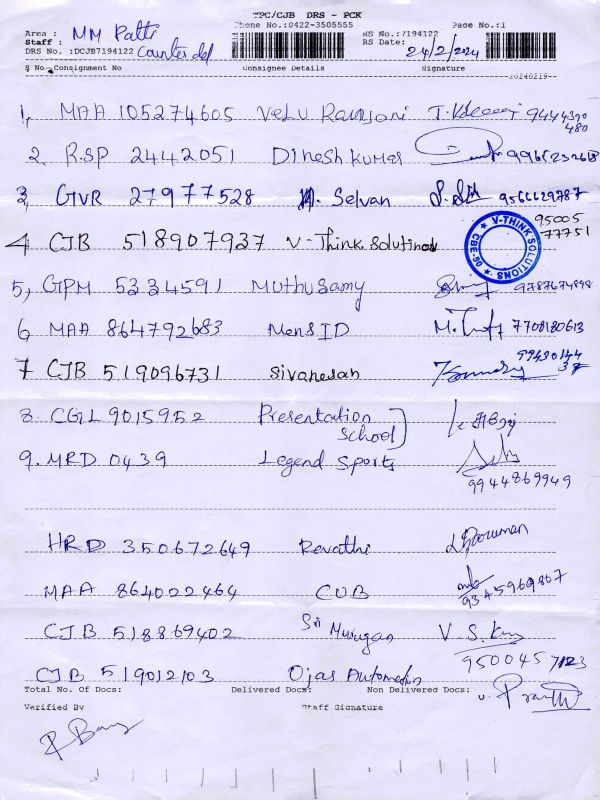 TPC/CJB DRS - PCK
Phone No.:0422-3505555 Page No.:1
Area : MM Patti HS No.:7194122
Staff : RS Date: 24/2/2024
DRS No. :DCJB7194122 Counter del
S No Consignment No Consignee Details Signature
20240219
1, MAA 105274605 Velu Ramjani 9444390
480
2. RSP 2442051 Dinesh Kumar
3, GVR 27977528 M. Selvan 9566629787
V-THINK SOLUTIONS
CBE-05
95005
77751
4 CJB 518907937 V-Think Solutions
5, GPM 5334591 Muthusamy 9787674898
6 MAA 864792683 Mens ID 7708180613
7 CJB 519096731 Sivanesan 99430144
37
8. CGL 9015952 Presentation
School
9. MRD 0439 Legend Sports
9944869949
HRD 350672649 Revathi
MAA 864022464 CUB 9345969807
CJB 518869402 Sri Murugan V. S.
9500457123
CJB 519012103 Ojas Automation
Total No. Of Docs: Delivered Docs: Non Delivered Docs:
Verified By Staff Signature